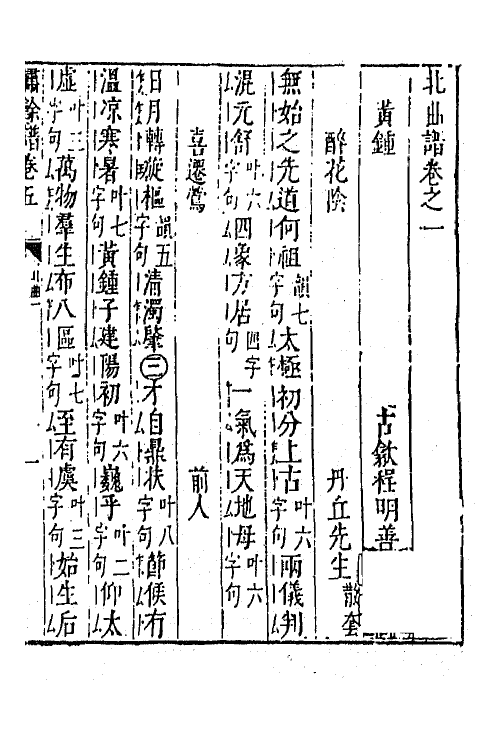 北曲譜卷之一
黃鍾 古歙程明善
醉花陰 丹丘先生 散套
無始之先道何祖 韻七字句 太極初分上古 叶六字句 兩儀判
混元舒 叶六字句 四象方居 四字句 一氣爲天地母 叶六字句
喜遷鶯 前人
日月轉旋樞 韻五字句 清濁肇三才自鼎扶 叶八字句 節候有
溫凉寒暑 叶七字句 黃鍾子建陽初 叶六字句 巍乎 叶二字句 仰太
虛 叶三字句 萬物羣生布八區 叶七字句 至有虞 叶三字句 始生后
嘯餘譜卷五 北曲一 一